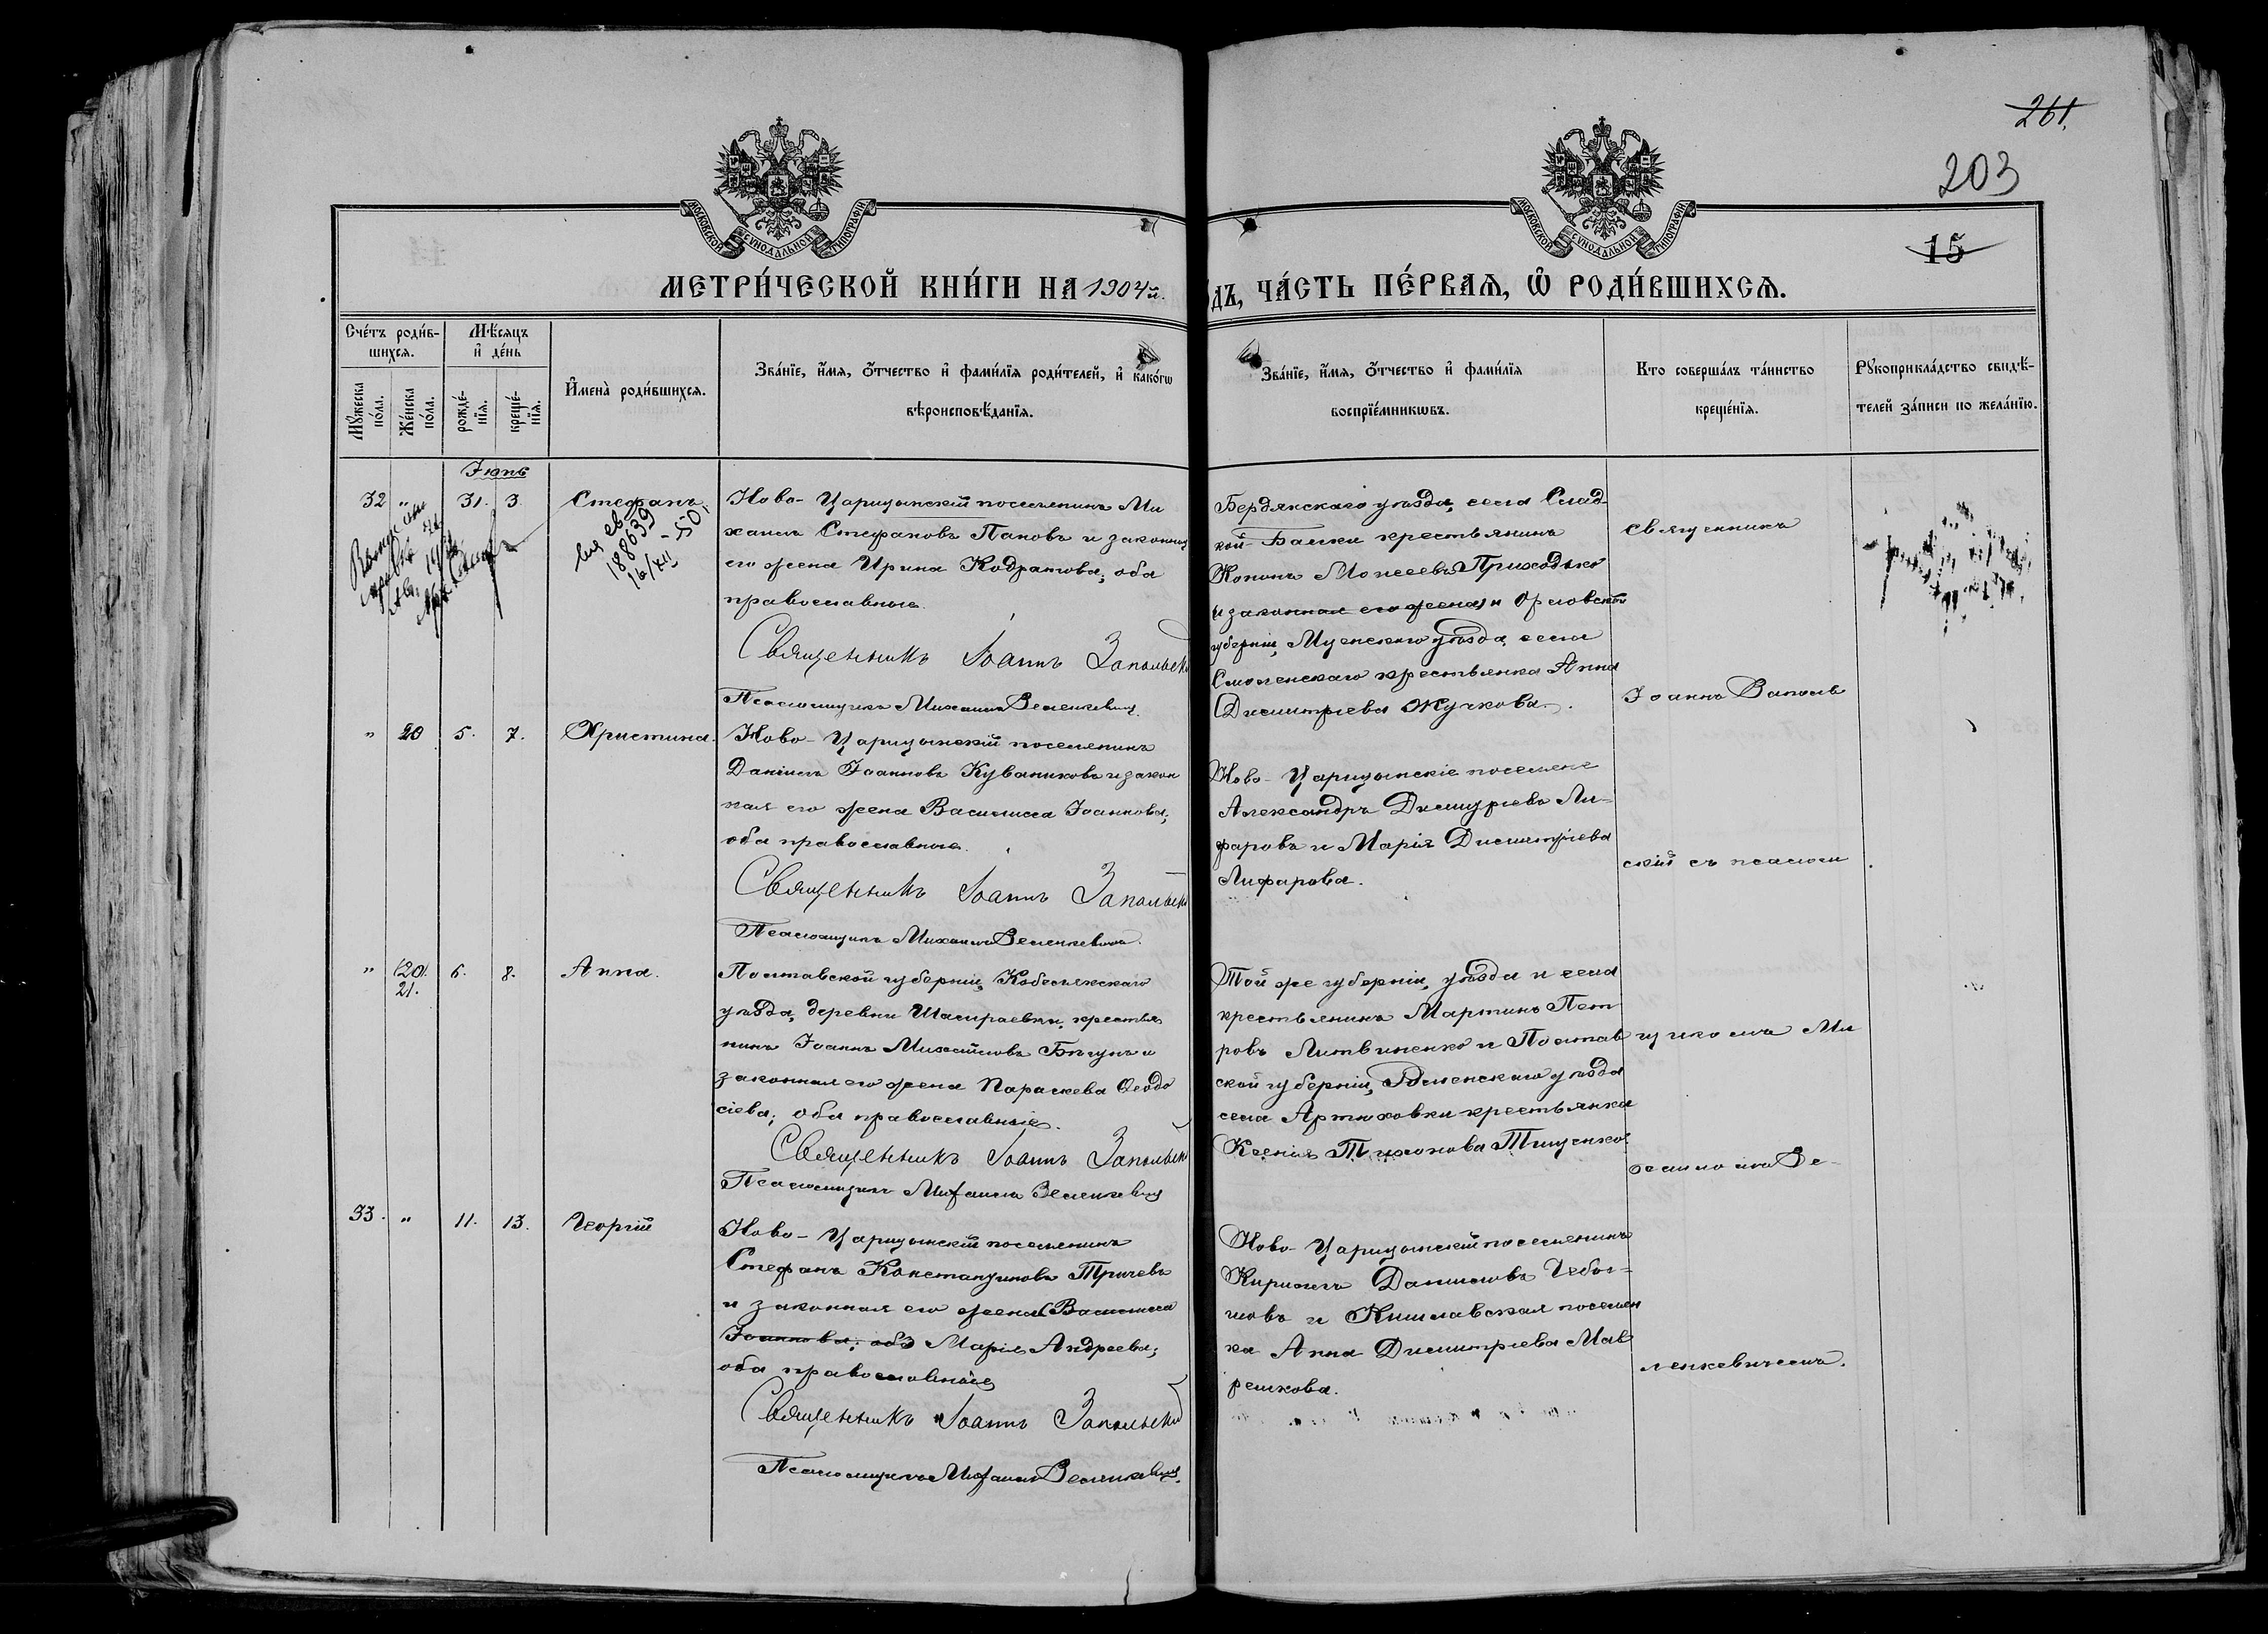 261.
203
15
МОСКОВСКОЙ СУНОДАЛЬНОЙ ТИПОГРАФІИ
МОСКОВСКОЙ СУНОДАЛЬНОЙ ТИПОГРАФІИ
МЕТРИ́ЧЕСКОЙ КНИ́ГИ НА 1904й.
ДЪ, ЧА́СТЬ ПЕ́РВАЯ, Ѿ РОДИ́ВШИХСЯ.
Сче́тъ роди́в-
шихся.
Мѣ́сяцъ
и҆ де́нь
Мꙋ́жеска по́ла.
Же́нска по́ла.
рожде́-
нїя.
креще́-
нїя.
И҆мена̀ роди́вшихся.
Зва́нїе, и҆́мя, ѻ҆́тчество и҆ фами́лїя роди́телей, и҆ како́гѡ
вѣроисповѣ́данїя.
Зва́нїе, и҆́мя, ѻ҆́тчество и҆ фами́лїя
воспрїе́мникѡвъ.
Кто соверша́лъ та́инство
креще́нїя.
Рꙋкоприкла́дство свидѣ́-
телей за́писи по жела́нїю.
Іюнь
32 " 31. 3. Стефанъ
188639
16/XII - 50.
Ново-Царицынскій поселянинъ Ми
хаилъ Стефановъ Пановъ и законная
его жена Ирина Кодратова; оба
православные.
Священникъ Іоаннъ Запольск
Псаломщикъ Михаилъ Зеленкевичъ.
Бердянскаго уѣзда, села Слад-
кой-Балки крестьянинъ
Кононъ Моисеевъ Приходько
и законная его жена) и Орловской
губерніи, Мценскаго уѣзда, села
Смоленскаго крестьянка Анна
Димитріева Жучкова.
" 20 5. 7. Христина.
Ново-Царицынскій поселянинъ
Даніилъ Іоанновъ Куваниковъ и закон
ная его жена Василисса Іоаннова;
оба православные.
Священникъ Іоаннъ Запольск
Псаломщикъ Михаилъ Зеленкевичъ.
Ново-Царицынскіе поселяне
Александръ Димитріевъ Ли-
фаровъ и Марія Димитріева
Лифарова.
" (20. 21. 6. 8. Анна.
Полтавской губерніи, Кобелякскаго
уѣзда, деревни крестья
нинъ Іоаннъ Михайловъ Бѣгунъ и
законная его жена Параскева Ѳеодо
сіева; оба православные.
Священникъ Іоаннъ Запольск
Псаломщикъ Михаилъ Зеленкевичъ
Той же губерніи, уѣзда и села
крестьянинъ Мартинъ Пет
ровъ Литвиненко и Полтав
ской губерніи, Роменскаго уѣзда
села Артюховки крестьянка
Ксенія Тихонова Тищенко.
33. " 11. 13. Георгій
Ново-Царицынскій поселянинъ
Стефанъ Константиновъ Тричевъ
и законная его жена (Василисса
Іоаннова; оба) Марія Андреева;
оба православные
Священникъ Іоаннъ Запольскій
Псаломщикъ Михаилъ Зеленкевичъ.
Ново-Царицынскій поселянинъ
Кириллъ Даниловъ
и Кишлавская поселян
ка Анна Димитріева Мав
решкова.
Священникъ
Іоаннъ Заполь
скій съ псалом
щикомъ Ми
хаиломъ Зе-
ленкевичемъ.